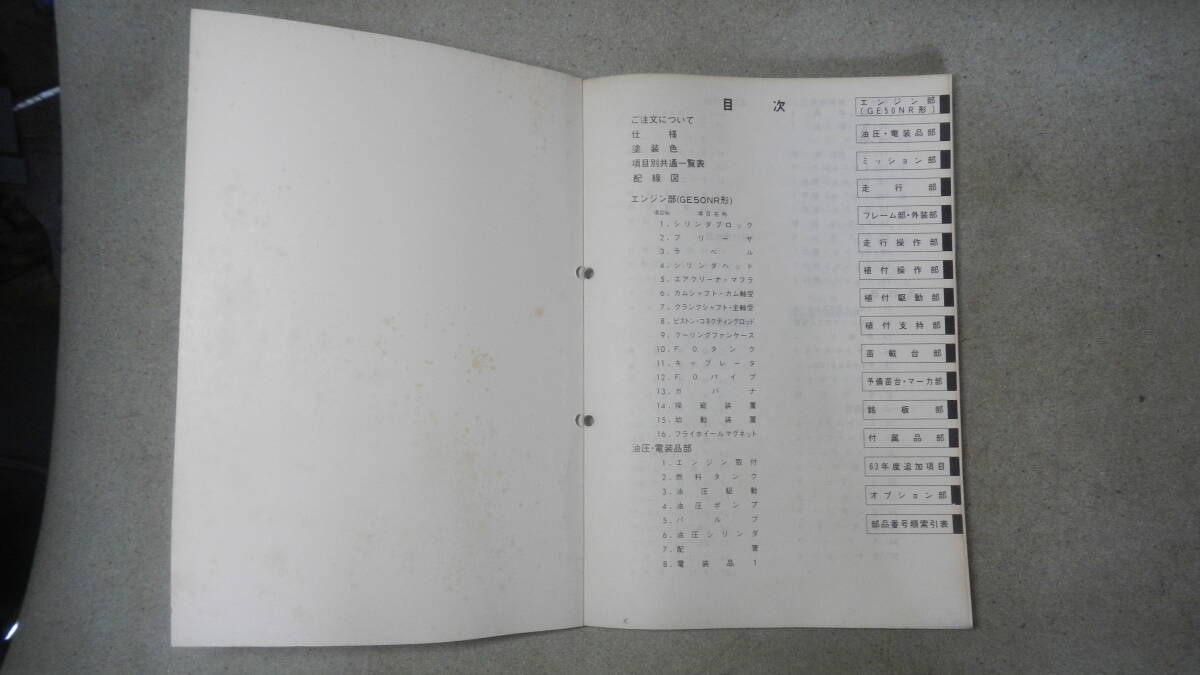 目次
ご注文について
仕様
塗装色
項目別共通一覧表
配線図
エンジン部(GE50NR形)
項目No. 項目名称
1. シリンダブロック
2. ブリーザ
3. ラベル
4. シリンダヘッド
5. エアクリーナ・マフラ
6. カムシャフト・カム軸受
7. クランクシャフト・主軸受
8. ピストン・コネクティングロッド
9. クーリングファンケース
10. F.O.タンク
11. キャブレータ
12. F.O.パイプ
13. ガバナ
14. 操縦装置
15. 始動装置
16. フライホイールマグネット
油圧・電装品部
1. エンジン取付
2. 燃料タンク
3. 油圧駆動
4. 油圧ポンプ
5. バルブ
6. 油圧シリンダ
7. 配管
8. 電装品1
エンジン部
(GE50NR形)
油圧・電装品部
ミッション部
走行部
フレーム部・外装部
走行操作部
植付操作部
植付駆動部
植付支持部
苗載台部
予備苗台・マーカ部
銘板部
付属品部
63年度追加項目
オプション部
部品番号順索引表